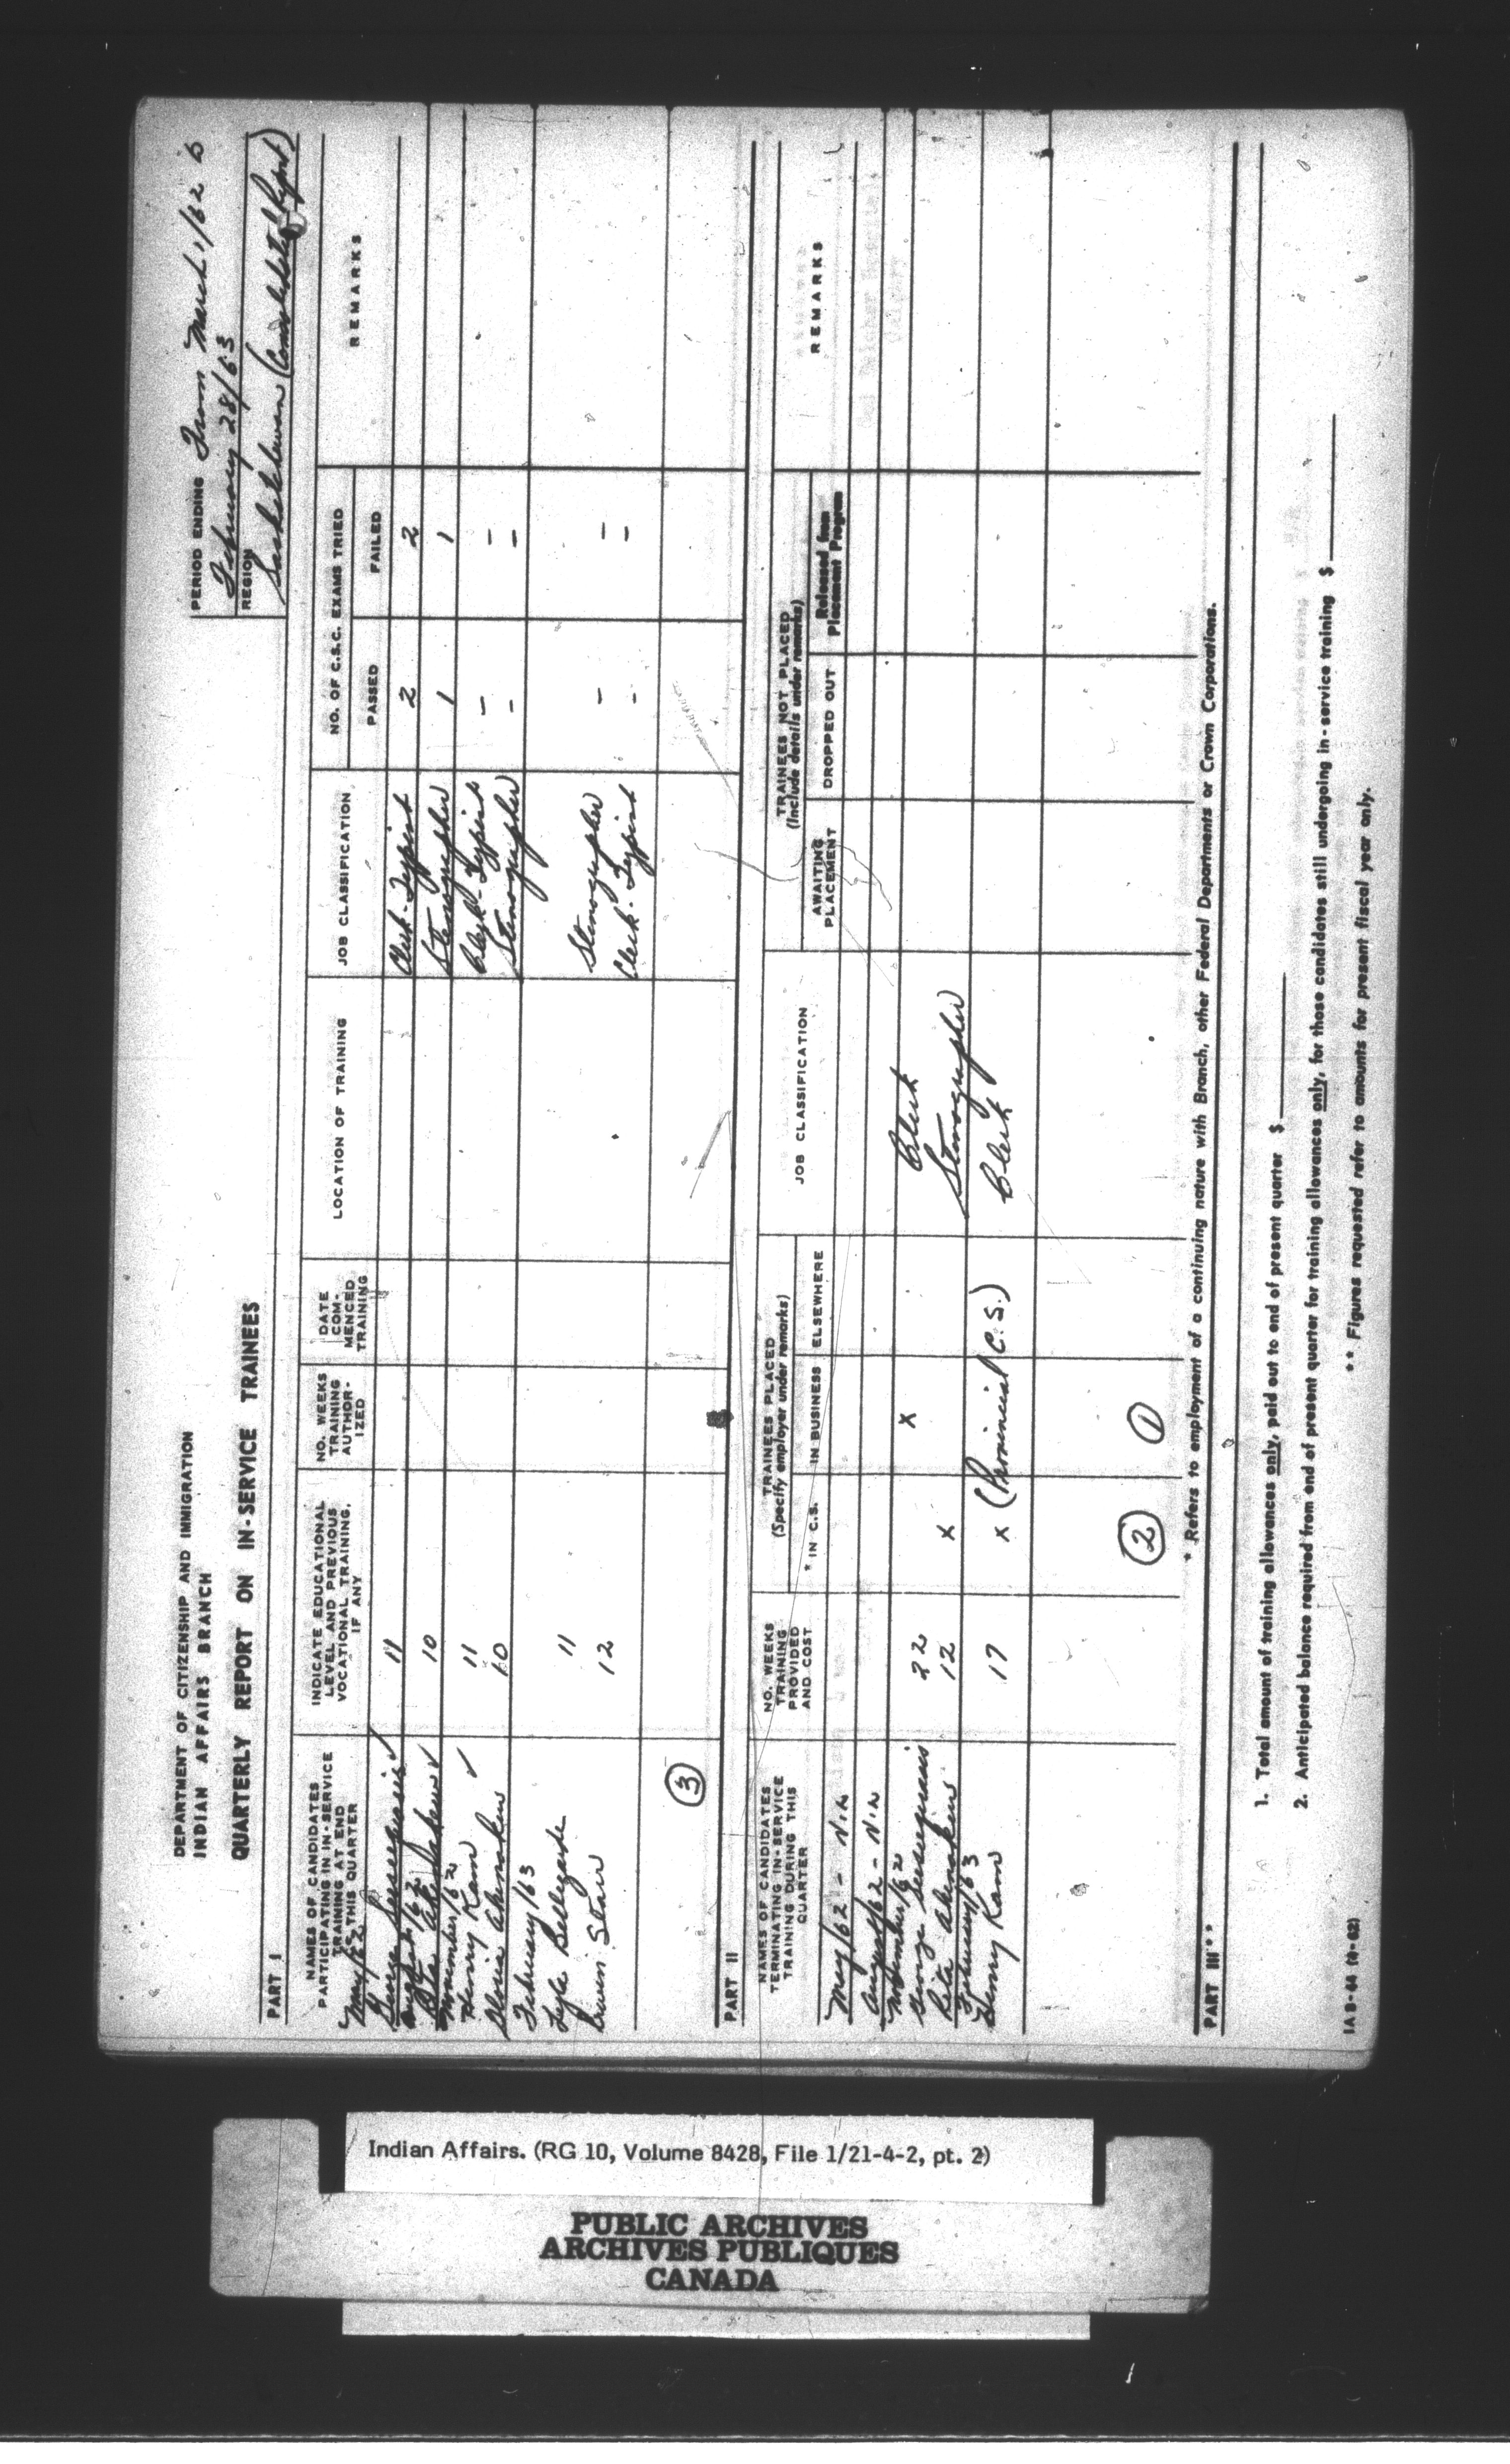 DEPARTMENT OF CITIZENSHIP AND IMMIGRATION
INDIAN AFFAIRS BRANCH
QUARTERLY REPORT ON IN-SERVICE TRAINEES
PERIOD ENDING From March 1/62 to
February 28/63
REGION
Saskatchewan (Consolidated Report)
PART I
NAMES OF CANDIDATES PARTICIPATING IN IN-SERVICE TRAINING AT END OF THIS QUARTER
INDICATE EDUCATIONAL LEVEL AND PREVIOUS VOCATIONAL TRAINING, IF ANY
NO. WEEKS TRAINING AUTHOR-IZED
DATE COM-MENCED TRAINING
LOCATION OF TRAINING
JOB CLASSIFICATION
NO. OF C.S.C. EXAMS TRIED
PASSED
FAILED
REMARKS
May/62
George ✓ 11 Clerk-Typist 2 2
August/62
Rita Akenskew ✓ 10 Stenographer 1 1
November/62
Henry Kam ✓ 11 Clerk-Typist - -
Akenskew 10 Stenographer - -
February/63
Lyle Bellegarde 11 Stenographer - -
Starr 12 Clerk-Typist - -
3
PART II
NAMES OF CANDIDATES TERMINATING IN-SERVICE TRAINING DURING THIS QUARTER
NO. WEEKS TRAINING PROVIDED AND COST
TRAINEES PLACED
(Specify employer under remarks)
* IN C.S.
IN BUSINESS
ELSEWHERE
JOB CLASSIFICATION
TRAINEES NOT PLACED
(Include details under remarks)
AWAITING PLACEMENT
DROPPED OUT
Released from Placement Program
REMARKS
May/62 - Nil
August/62 - Nil
November/62
George 22 x Clerk
Rita Akenskew 12 x Stenographer
February/63
Henry Kam 17 x (Provincial C.S.) Clerk
2 1
* Refers to employment of a continuing nature with Branch, other Federal Departments or Crown Corporations.
PART III **
1. Total amount of training allowances only, paid out to end of present quarter $
2. Anticipated balance required from end of present quarter for training allowances only, for those candidates still undergoing in-service training $
** Figures requested refer to amounts for present fiscal year only.
IAB-44 (4-62)
Indian Affairs. (RG 10, Volume 8428, File 1/21-4-2, pt. 2)
PUBLIC ARCHIVES
ARCHIVES PUBLIQUES
CANADA